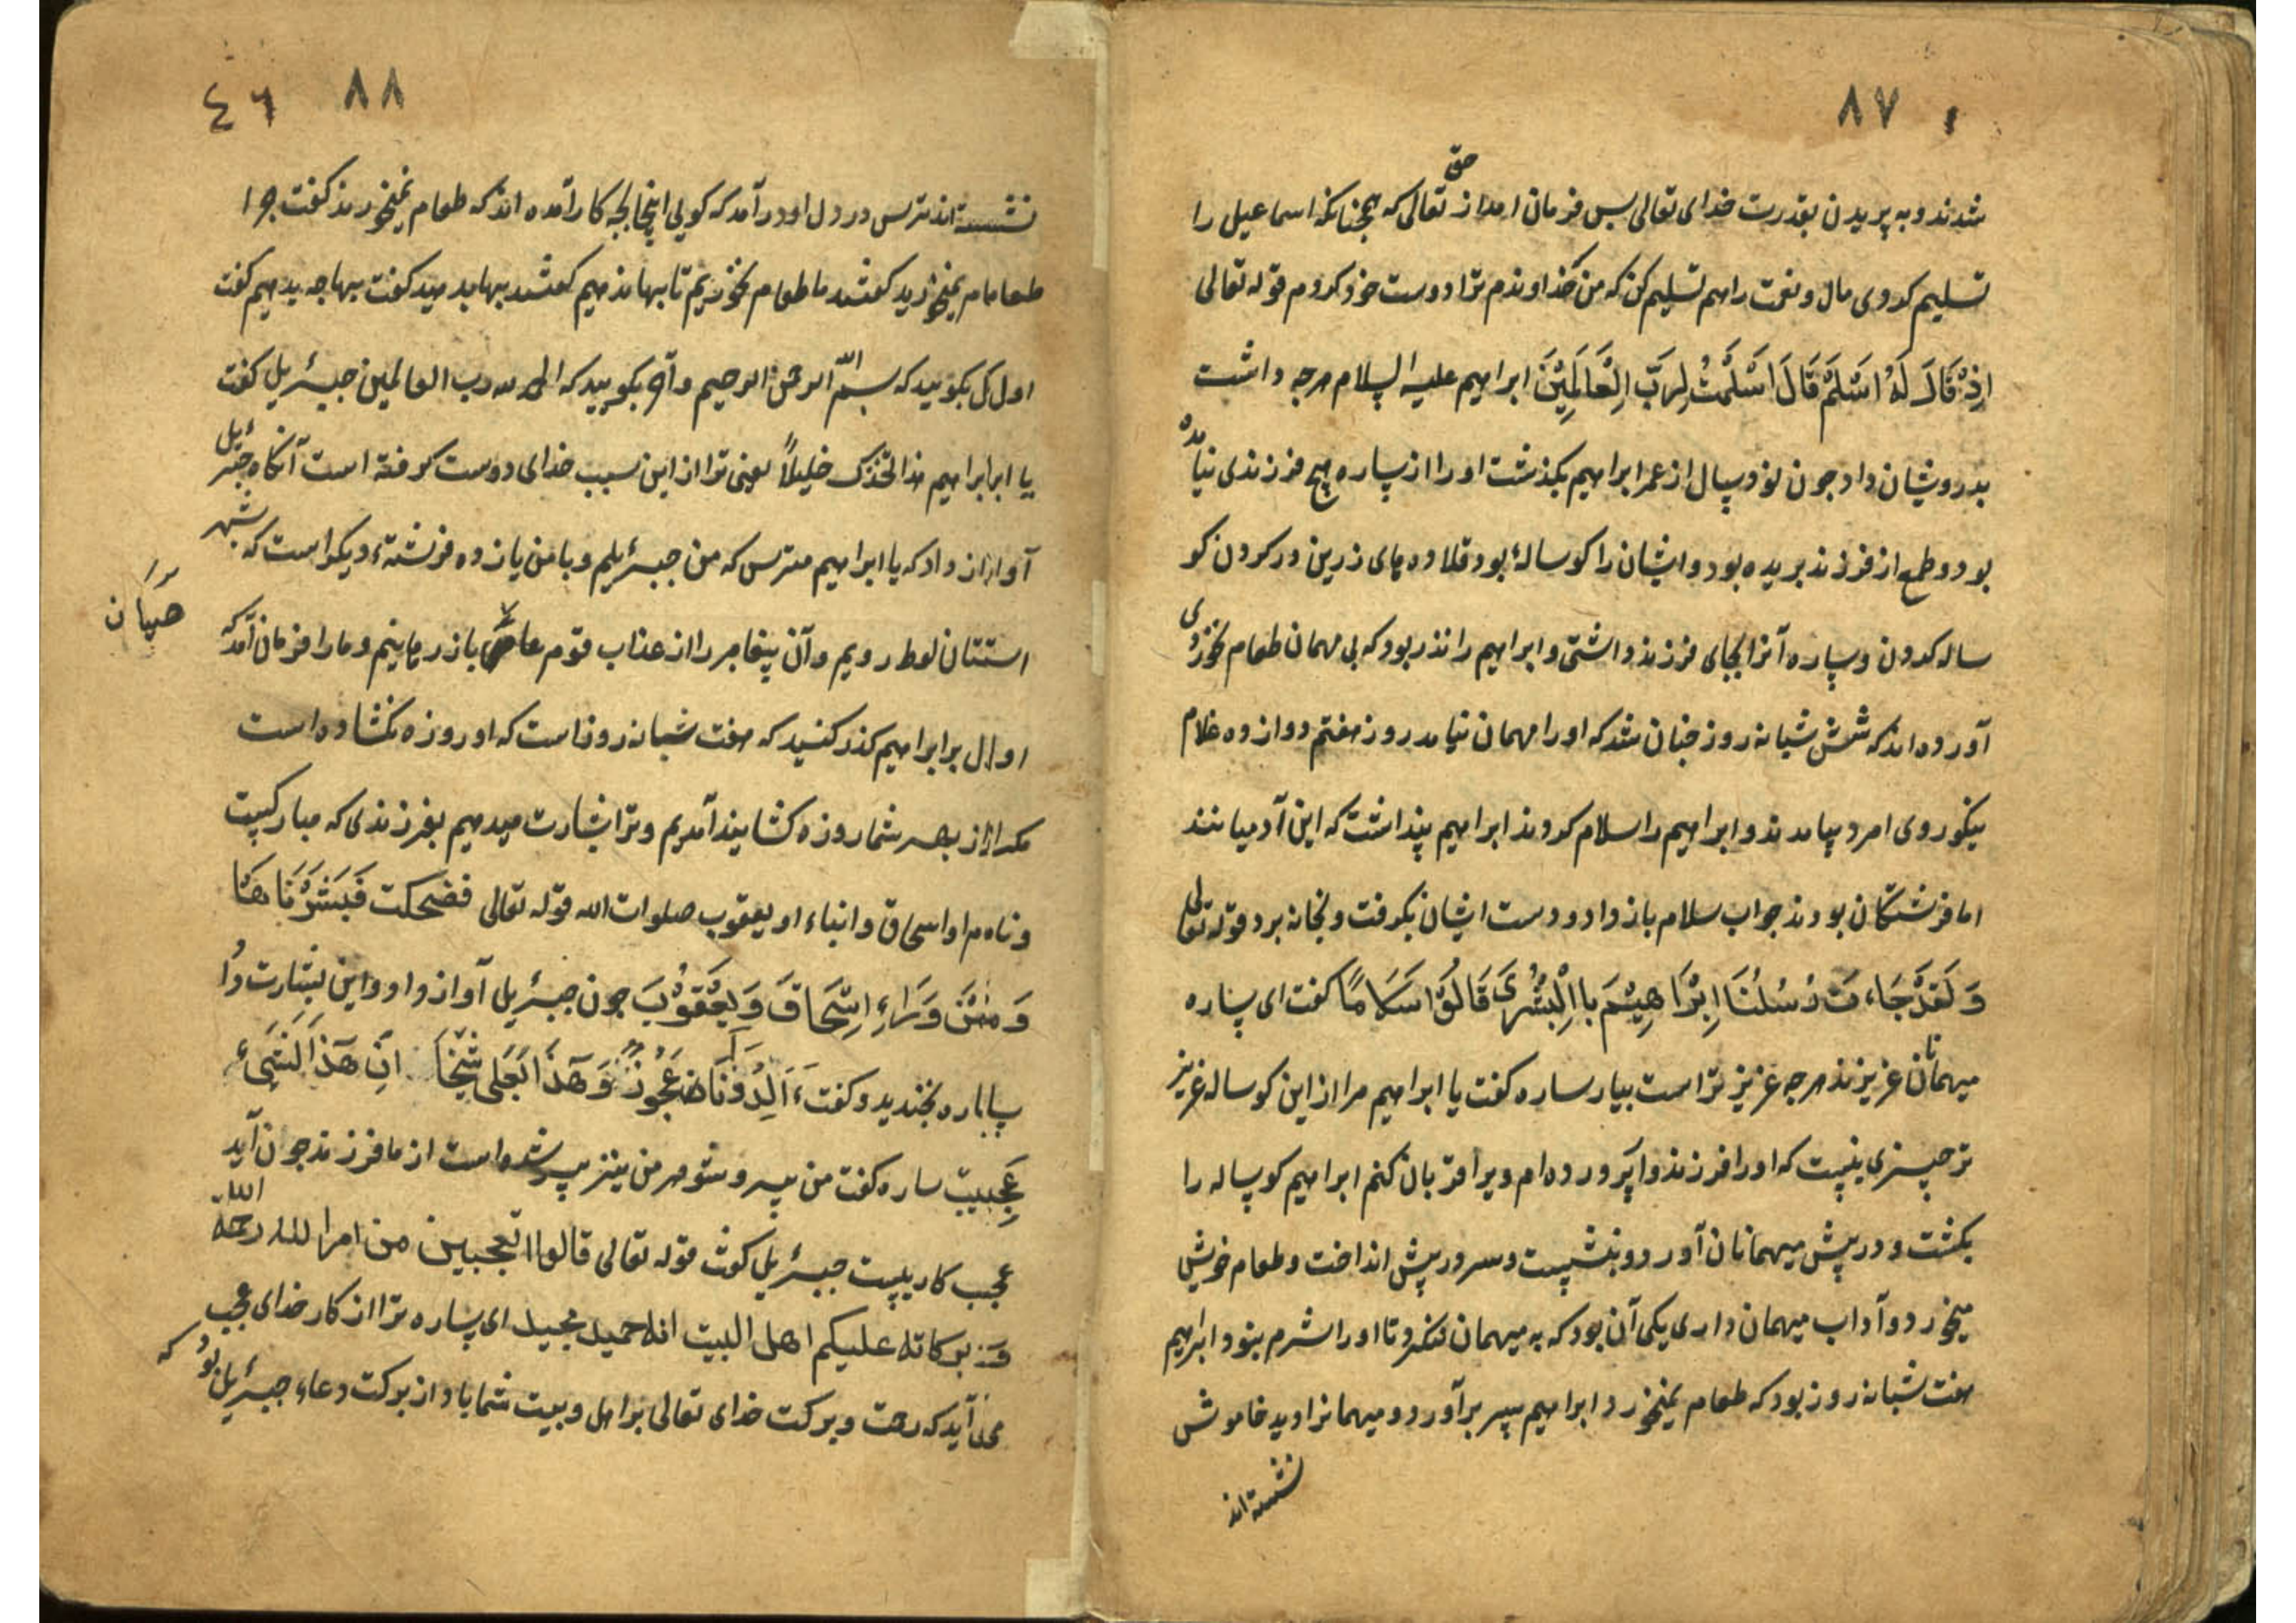 ۸۷
حق
شدند و به پریدن بقدرت خدای تعالی پس فرمان امد از تعالی که همچنانکه اسماعیل را
تسلیم کردی مال و نعمت را هم تسلیم کن که من خداوندم ترا دوست خود کردم قوله تعالی
اِذْ قَالَ لَهُ اَسْلِمْ قَالَ اَسْلَمْتُ لِرَبِّ الْعَالَمِیْنَ ابراهیم علیه السلام هرچه داشت
بدرویشان داد جون نود سال از عمر ابراهیم بکذشت او را از ساره هیچ فرزندی نیامده
بود و طمع از فرزند بریده بود و ایشان را کوسالهٔ بود قلاده های زرین در کردن کو
ساله کردن و ساره آنرا بجای فرزند داشتی و ابراهیم را نذر بود که بی مهمان طعام نخوردی
آورده اند که شش شبانه روز جنان شد که او را مهمان نیامد روز هفتم دوازده غلام
نیکو روی امرد بیامدند و ابراهیم را سلام کردند ابراهیم پنداشت که این آدمیانند
اما فرشتکان بودند جواب سلام باز داد و دست ایشان بکرفت و بخانه برد قوله تعالی
وَ لَقَدْ جَاءَ تْ رُسُلُنَا اِبْرَاهِیْمَ باالْبُشْرَی قَالُوْا سَلَامًا کفت ای ساره
میهمانان عزیزند هرجه عزیز تر است بیار ساره کفت یا ابراهیم مرا از این کوساله عزیز
تر جیزی نیست که او را فرزندوا پرورده ام ویرا قربان کنم ابراهیم کوساله را
بکشت و در پیش میهمانان آورد و بنشست و سر در پیش انداخت و طعام خویش
میخورد و آداب میهمان داری یکی آن بود که به میهمان ننکرد تا او را شرم نبود ابراهیم
هفت شبانه روز بود که طعام نمیخورد ابراهیم سر برآورد و میهمانرا دید خاموش
نشسته اند
۸۸ ٤٦
نشسته اند ترس در دل او در آمد که کویی اینجا بجه کار آمده اند که طعام نمیخورند کفت جرا
طعامام نمیخورید کفتند ما طعام نخوریم تا بها ندهیم کفتند بها بدهید کفت بها جه بدهیم کفت
اول کل بکویید که بسم الله الرحمن الرحیم و آخر بکویید که الحمدلله رب العالمین جبرئیل کفت
یا ابرابراهیم هذا اتخذک خلیلاً یعنی ترا از این سبب خدای دوست کرفته است آنکاه جبرئیل
آوازاز داد که یا ابراهیم مترس که من جبرئیلم و با من یازده فرشتهٔ دیکر است که بشهر
استتنان لوط رویم و آن پیغامبر را از عذاب قوم عاصی باز رهانیم و ما را فرمان آمد که
اوال بر ابراهیم کذر کنید که هفت شبانه روز است که او روزه نکشاده است
مکراز از بهر شما روزه کشایند آمدیم و ترا بشارت میدهیم بفرزندی که مبارکیست
و نام او اسحاق و انباء او یعقوب صلوات الله قوله تعالی فضحکت فَبَشَّرْنَاهَا
وَ مِنْ وَرَاءِ اِسْحَاقَ وَ یَعْقُوْبَ جون جبرئیل آواز داد و این بشارت داُ
ساباره بخندید و کفت ءَاَلِدُ وَ نَا ضعَجُوزٌ وَ هَذَا بَعْلِی شَیْخًا اِنَّ هَذَا لَشَیْءٌ
عَجِیبٌ ساره کفت من پیر و شوهر من نیز پیر شده است از ما فرزند جون آید
عجب کاریست جبرئیل کوث قوله تعالی قالوا اتعجبین من امر الله رحمة الله
و برکاته علیکم اهل البیت انه حمید مجید ای ساره ترا از کار خدای عجب
می آید که رحمت و برکت خدای تعالی بر اهل و بیت شما باد از برکت دعاء جبرئیل بوُد که